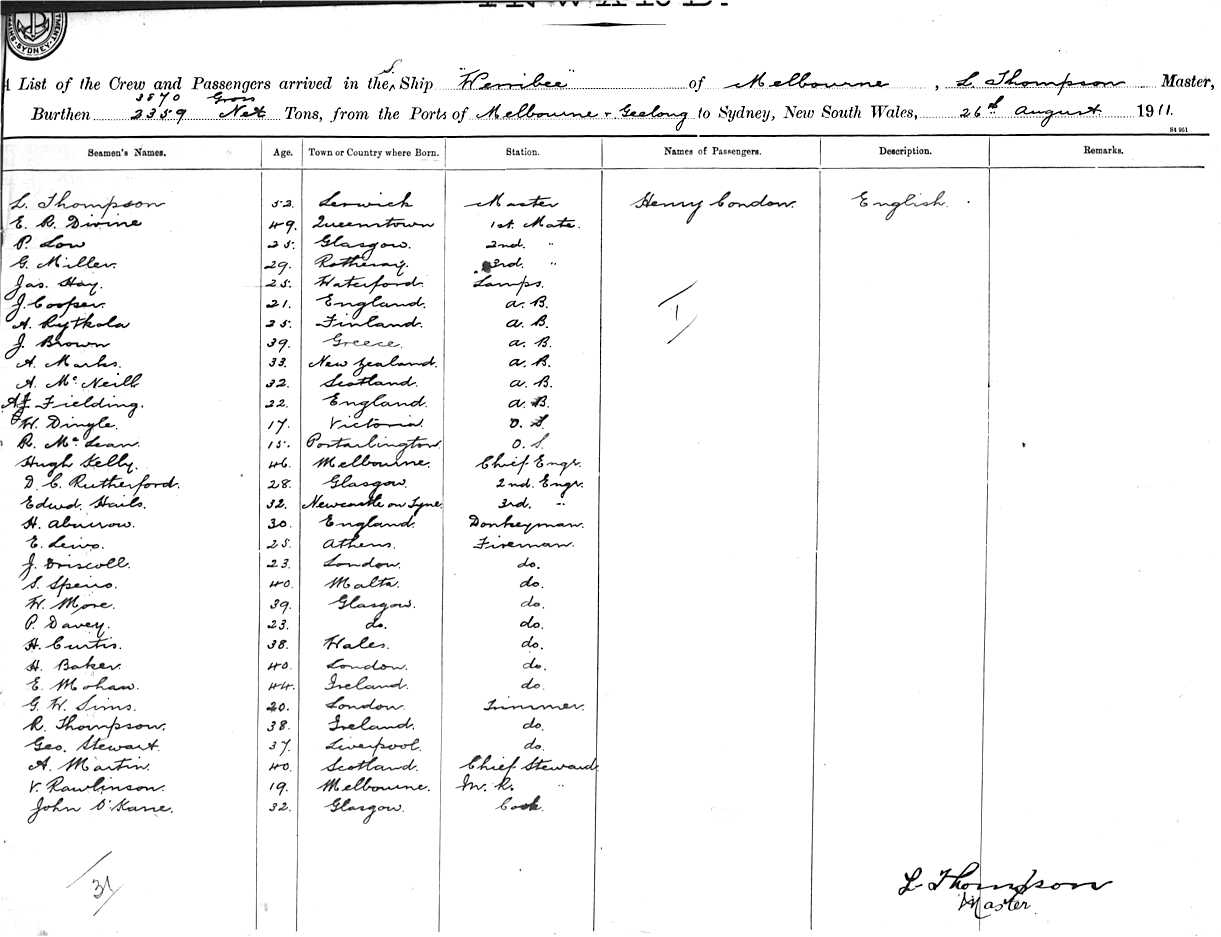 INWARD.
SYDNEY
A List of the Crew and Passengers arrived in the S. Ship "Werribee" of Melbourne, L. Thompson Master,
3870 Gross
Burthen 2359 Net Tons, from the Ports of Melbourne & Geelong to Sydney, New South Wales, 26th August 1911.
S4 951
Seamen's Names. Age. Town or Country where Born. Station. Names of Passengers. Description. Remarks.
L. Thompson 52. Lerwick Master Henry Condon. English.
E. R. Divine 49. Queenstown 1st. Mate.
P. Low 25. Glasgow. 2nd. "
G. Miller. 29. Rothesay. 3rd. "
Jas. Hay. 25. Waterford. Lamps.
J. Cooper. 21. England. A. B. 1
A. Rytkola 25. Finland. A. B.
J. Brown 39. Greece. A. B.
A. Marks. 33. New Zealand. A. B.
A. McNeill 32. Scotland. A. B.
A J Fielding. 22. England. A. B.
W. Dingle. 17. Victoria O. S.
R. McLean. 15. Portarlington. O. S.
Hugh Kelly. 46. Melbourne. Chief Engr.
D. C. Rutherford. 28. Glasgow. 2nd. Engr.
Edwd. Hails. 32. Newcastle on Tyne. 3rd. "
H. 30. England. Donkeyman.
E. 25. Athens. Fireman.
J. Driscoll. 23. London. do.
S. Speiro. 40. Malta. do.
W. More. 39. Glasgow. do.
P. Davey. 23. do. do.
H. Curtis. 38. Wales. do.
H. Baker. 40. London. do.
E. Mohan. 44. Ireland. do.
G. W. Sims. 20. London. Trimmer.
R. Thompson. 38. Ireland. do.
Geo. Stewart. 37. Liverpool. do.
A. Martin. 40. Scotland. Chief Steward
V. Rawlinson. 19. Melbourne. M. R. "
John O'Kane. 32. Glasgow. Cook.
31
L Thompson
Master